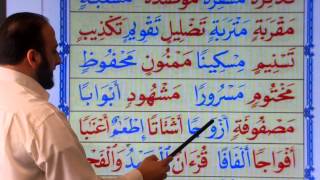 مَقْرَبَةٍ مَتْرَبَةٍ تَضْلِيلٍ تَقْوِيمٍ تَكْذِيبٍ
تَسْنِيمٍ مِسْكِينًا مَمْنُونٍ مَحْفُوظٍ
مَخْتُومٍ مَسْرُورًا مَشْهُودٍ أَبْوَابًا
مَصْفُوفَةٌ أَزْوَٰجًا أَشْتَاتًا إِطْعَٰمٌ أَعْنَٰبًا
أَفْوَاجًا أَلْفَافًا قُرْءَانٌ